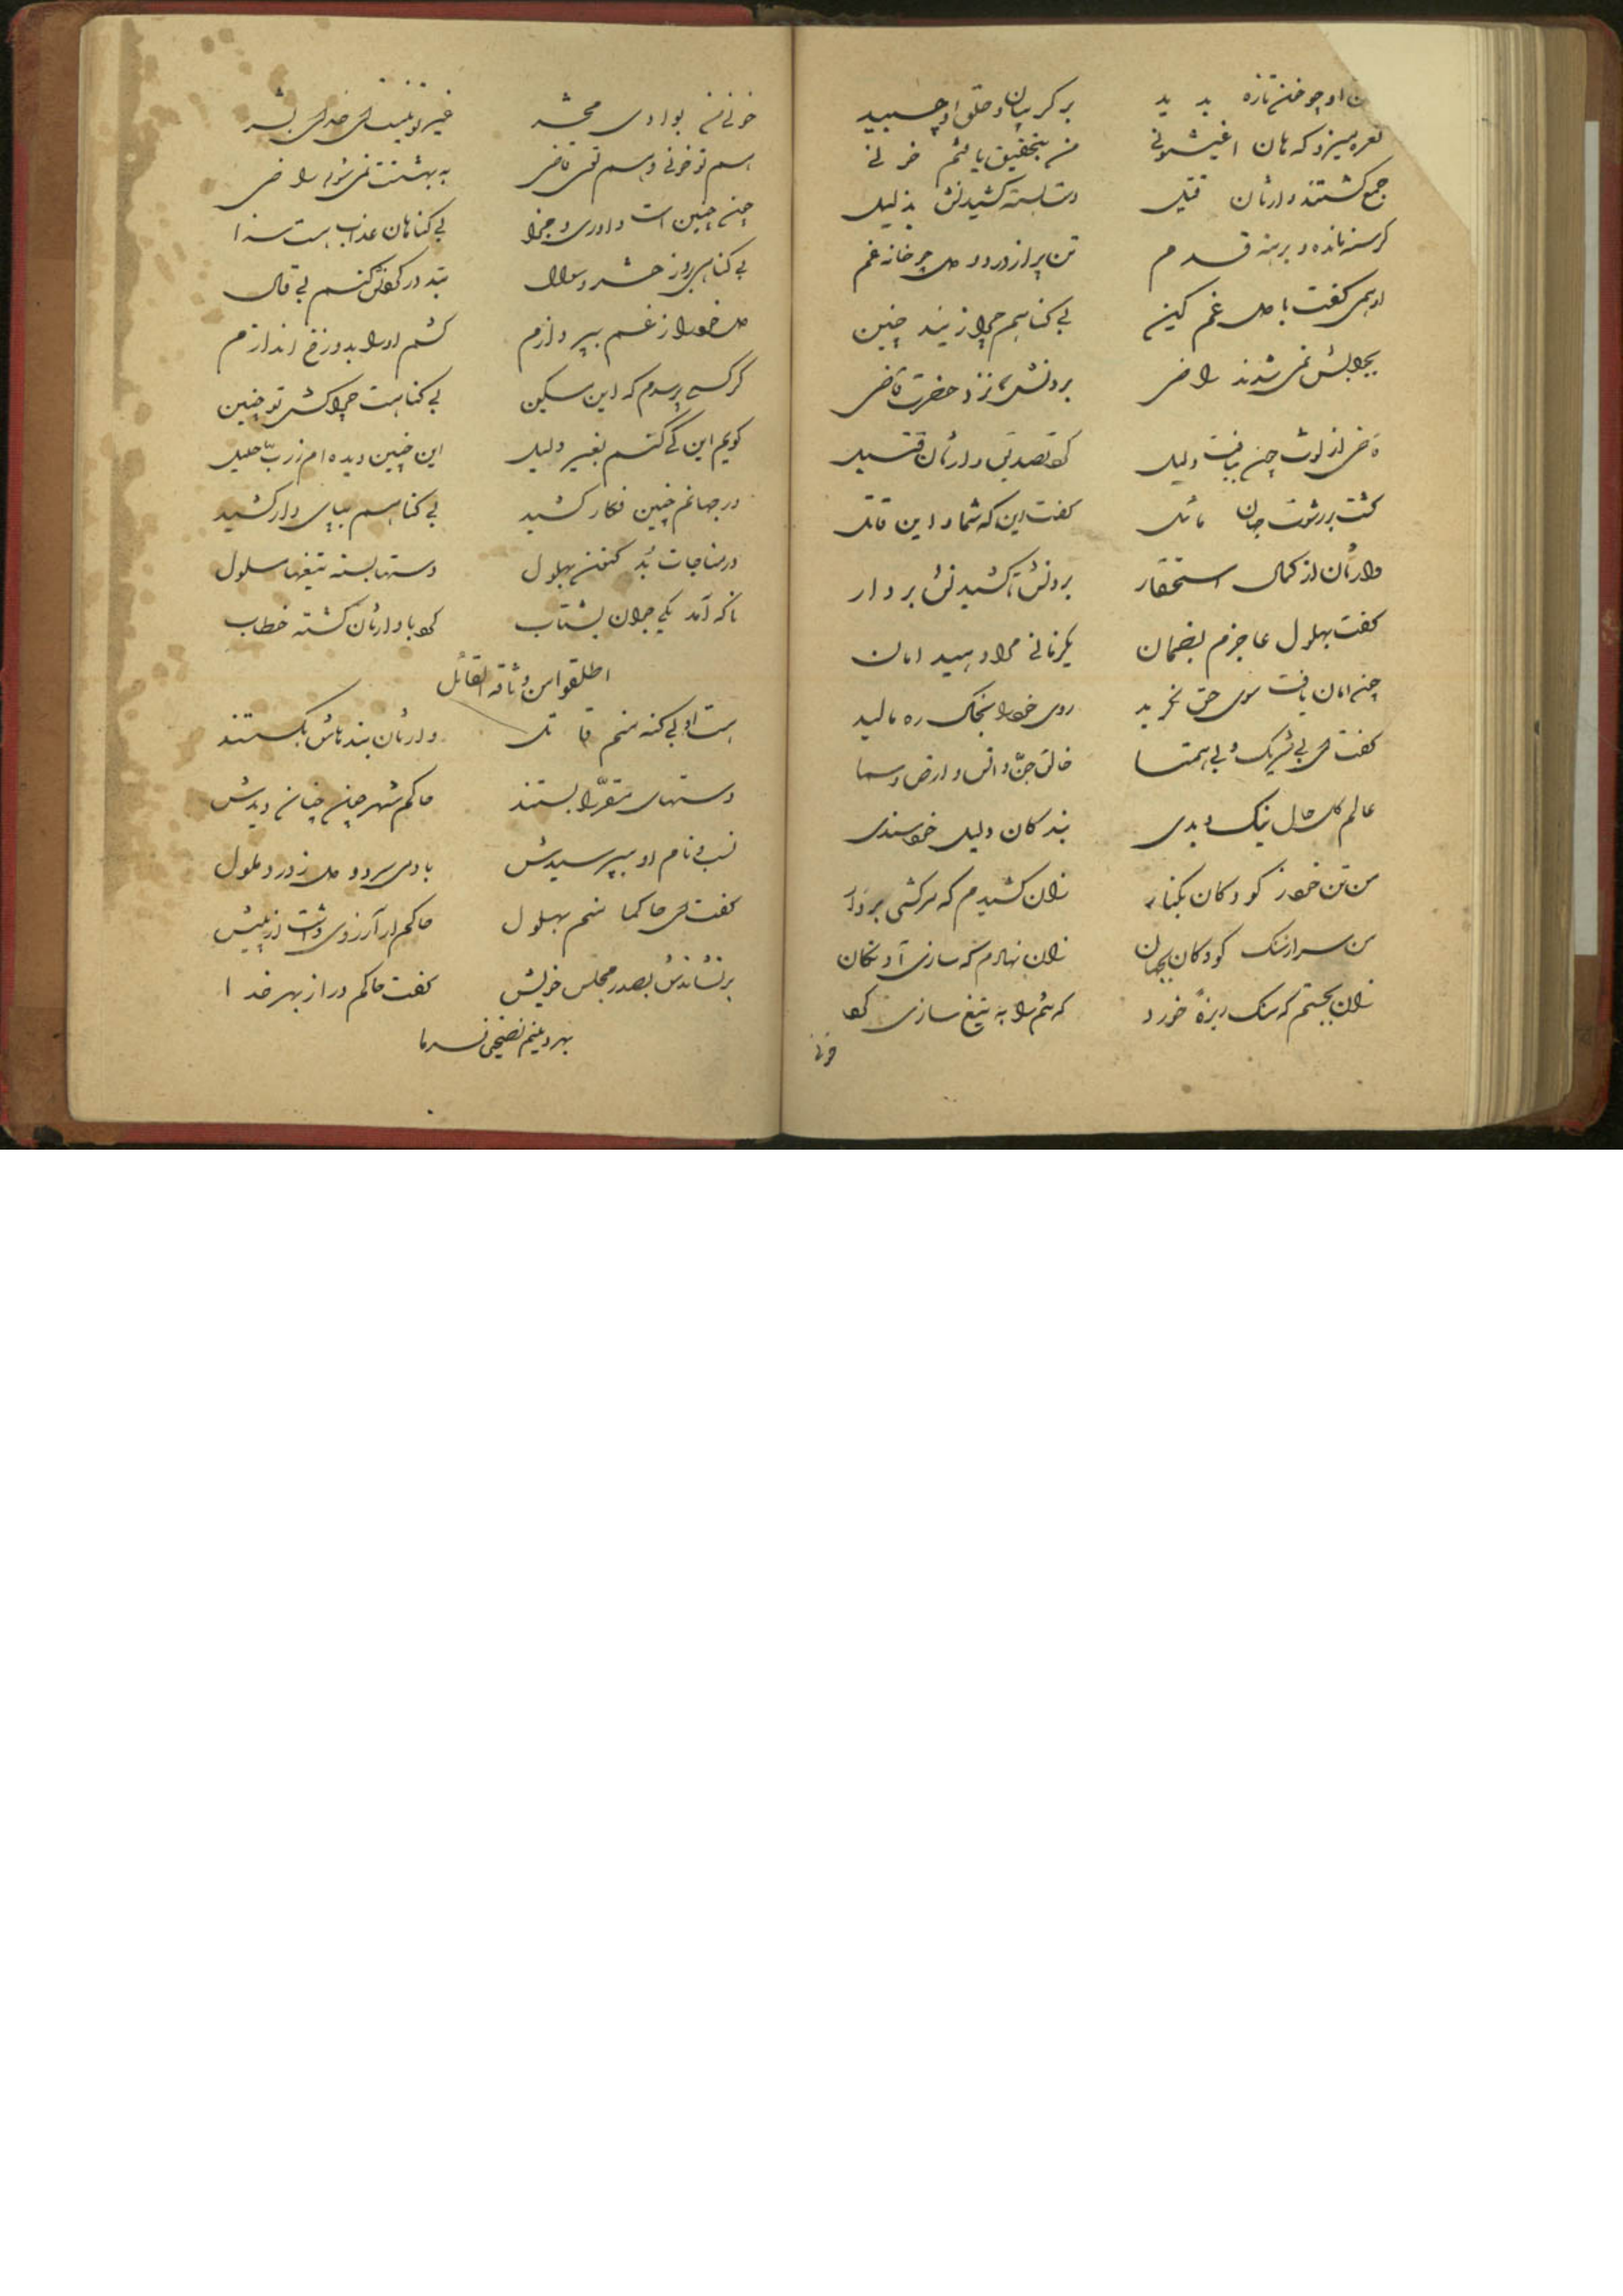 او چو خون تازه بدید بر گریبان و حلق او چسبید
نعره میزد که هان اغیثونی من بتحقیق یافتم خونی
جمع گشتند وارثان قتیل دست بسته کشیدنش بذلیل
گرسنه مانده و برهنه قدم تن پر از درد و دل پر خانه غم
او همی گفت با دل غم گین بی گناهم چرا زنید چنین
بجوابش نمی شدند راضی بردنش تا نزد حضرت قاضی
قاضی از لوث چون بیافت دلیل کرد تصدیق وارثان قتیل
گشت بر رشوت جهان مائل گفت این که شما و این قاتل
وارثان از کمال استحقار بردنش تا کشیدنش بر دار
گفت بهلول عاجزم بضمان یکزمانی مرا دهید امان
چون امان یافت سوی حق نگرید روی خود را بخاک ره مالید
گفت ای بی شریک و بی همتا خالق جن و انس و ارض و سما
عالم کل حال نیک و بدی بندگان دلیل خرسندی
من تن خود ز کودکان بکنار زان کشیدم که سرکشی بر دار
من سر از سنگ کودکان بجهان زان نهادم که سازی آونگان
زان بجستم که سنگ ریزهٔ خورد که تنم را به تیغ سازی کرد
خونی
خونی من بوادی محشر غیر تو نیست ای خدای بشر
هم تو خونی و هم توی قاضی به بهشتت نمی شوم راضی
چون چنین است داوری و جزا بی گناهان عذاب هست سزا
بی گناهی بروز حشر و سوال بند در گردنش کنم بی قال
دل خود را ز غم بپردازم کشم او را بدوزخ اندازم
گر کسی پرسدم که این مسکین بی گناهست چرا کشی تو چنین
گویم این کی کنم بغیر دلیل این چنین دیده ام ز رب جلیل
در جهانم چنین فکار کشید بی گناهم بپای دار کشید
در مناجات بد کنون بهلول دستها بسته تیغها مسلول
ناگه آمد یکی جوان بشتاب کرد با وارثان کشته خطاب
اطلقوا من وثاقه القائل
هست او بی گنه منم قاتل وارثان بندهاش بگسستند
دستهای مقر را بستند حاکم شهر چون چنان دیدش
نسب و نام او بپرسیدش با دمی سرد و دل ز درد ملول
گفت ای حاکما منم بهلول حاکم ار آرزوی داشت از پیش
برنشاندش بصدر مجلس خویش گفت حاکم ورا ز بهر خدا
بهر دینم نصیحتی فرما